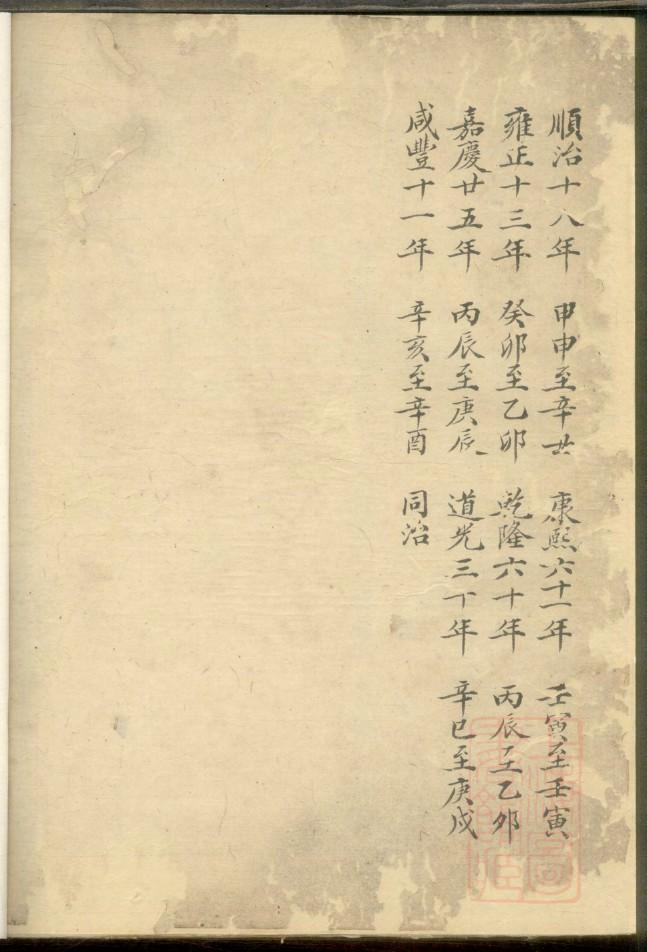 順治十八年 甲申至辛丑 康熙六十一年 壬寅至壬寅
雍正十三年 癸卯至乙卯 乾隆六十年 丙辰至乙卯
嘉慶廿五年 丙辰至庚辰 道光三十年 辛巳至庚戌
咸豐十一年 辛亥至辛酉 同治